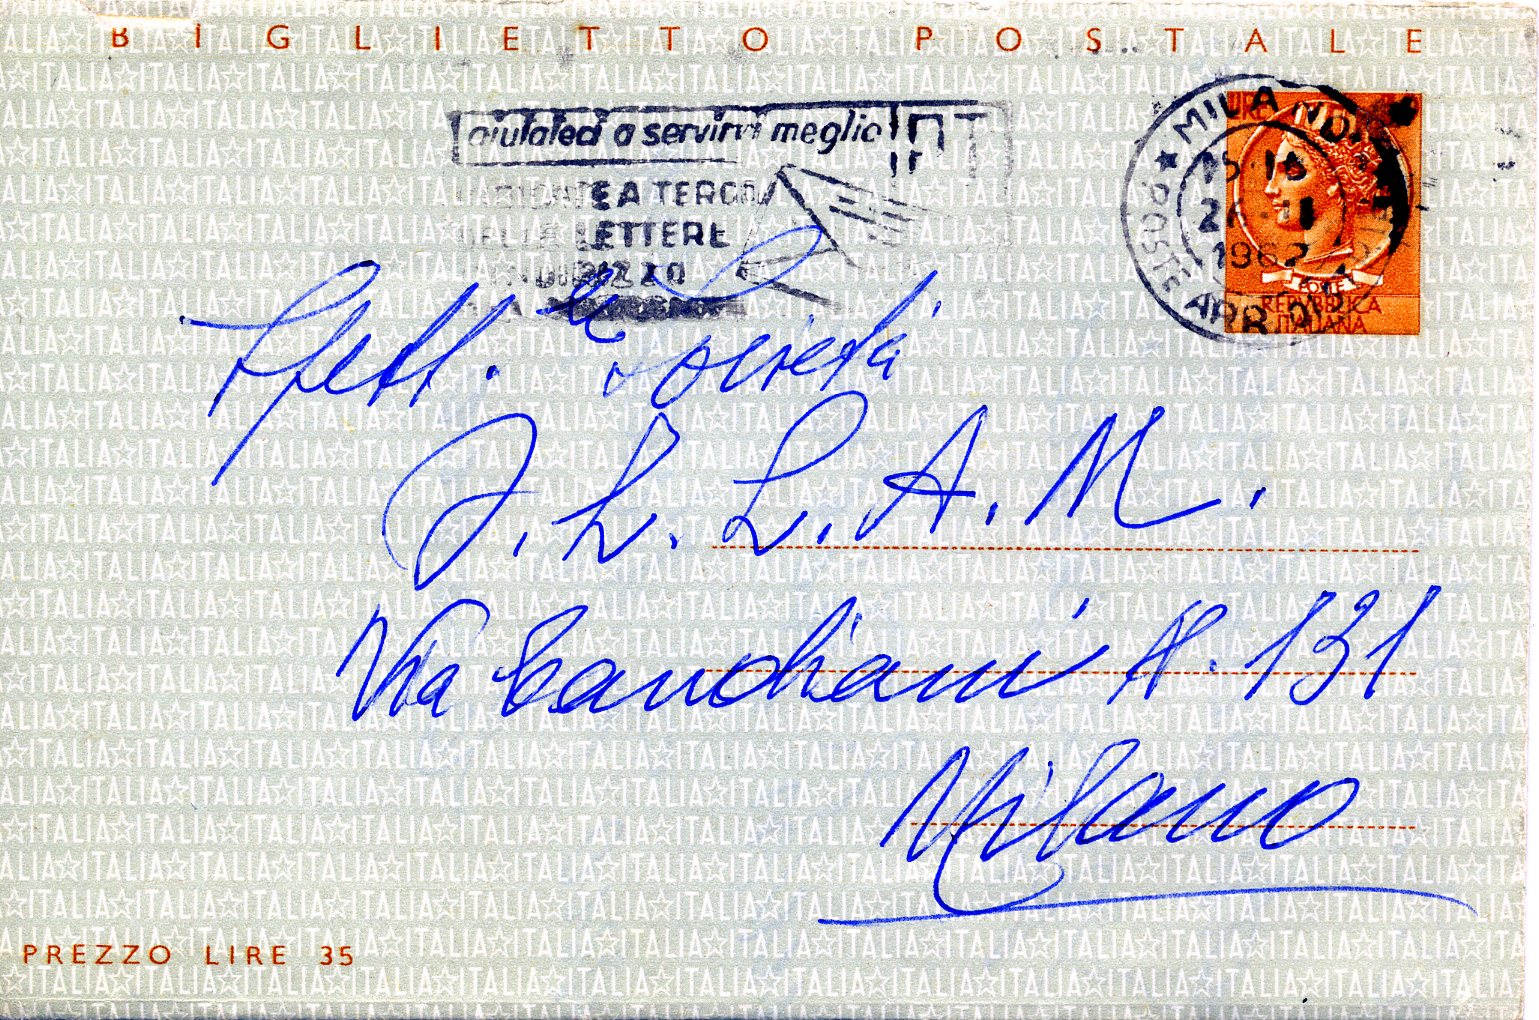 BIGLIETTO POSTALE
aiutateci a servirvi meglio PT
A TERGO
DELLE LETTERE
INDIRIZZO
MILANO
POSTE
ARR
15-16
1962
LIRE
POSTE
REPUBBLICA
ITALIANA
Spett. le Società
I.L.L.A.M.
Via Candiani N. 131
Milano
PREZZO LIRE 35
ITALIA☆ITALIA☆ITALIA